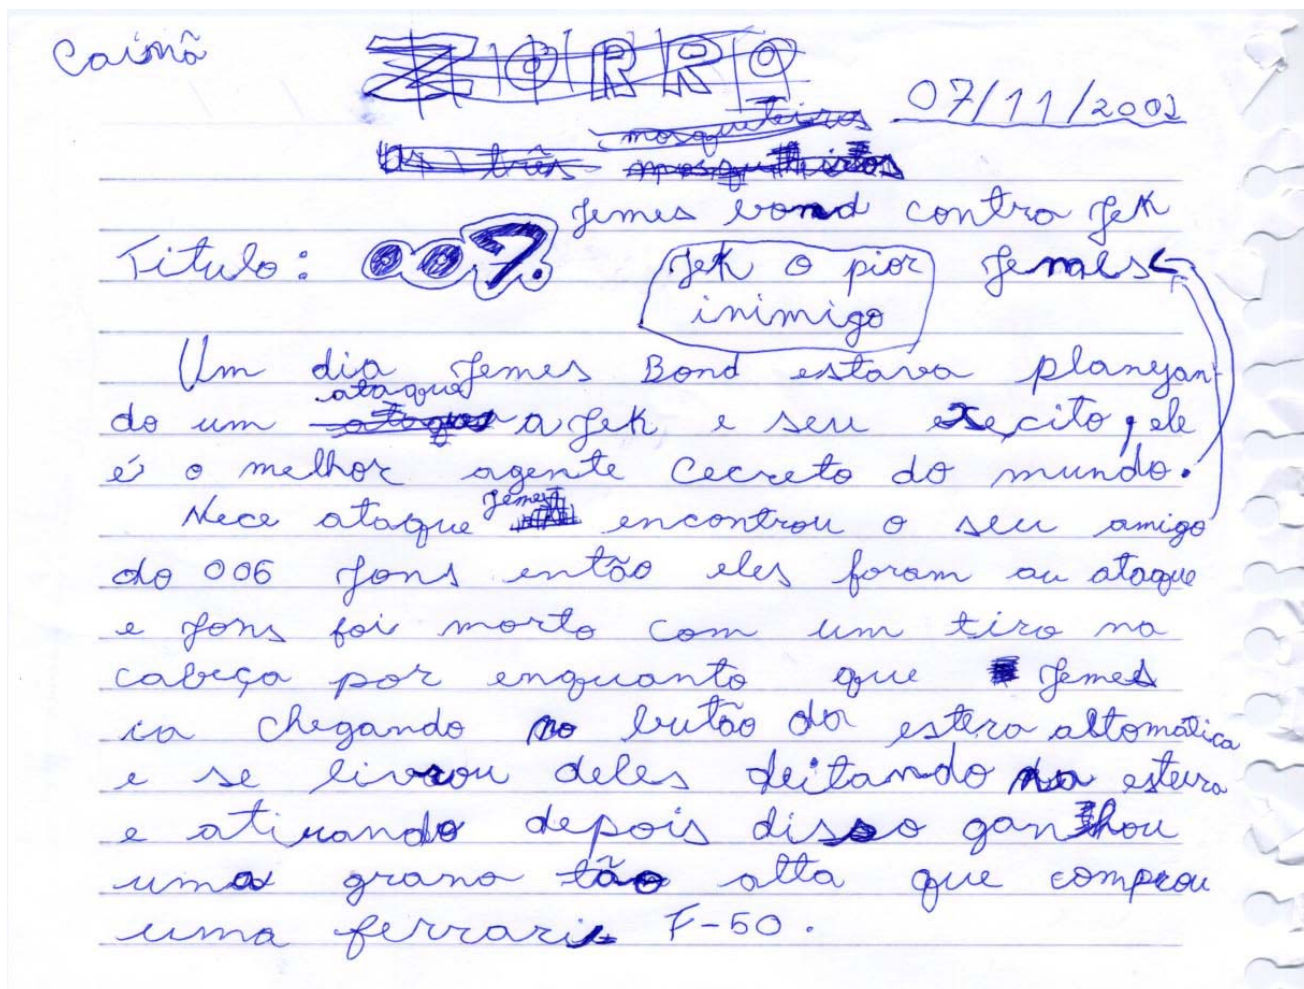 Cainã
ZORRO
07/11/2001
mosqueteiros
Os três
Jemes bond contra Jek
Titulo: 007. Jek o pior Jemes
inimigo
Um dia Jemes Bond estava planejan-
ataque
do um a Jek e seu execito, ele
é o melhor agente cecreto do mundo.
Jemes
Nece ataque encontrou o seu amigo
do 006 Jons então eles foram au ataque
e Jons foi morto com um tiro na
cabeça por enquanto que Jemes
ia chegando no butão da estera altomática
e se livrou deles deitando na esteira
e atirando depois disso ganhou
uma grana tão alta que comprou
uma ferrari F-50.